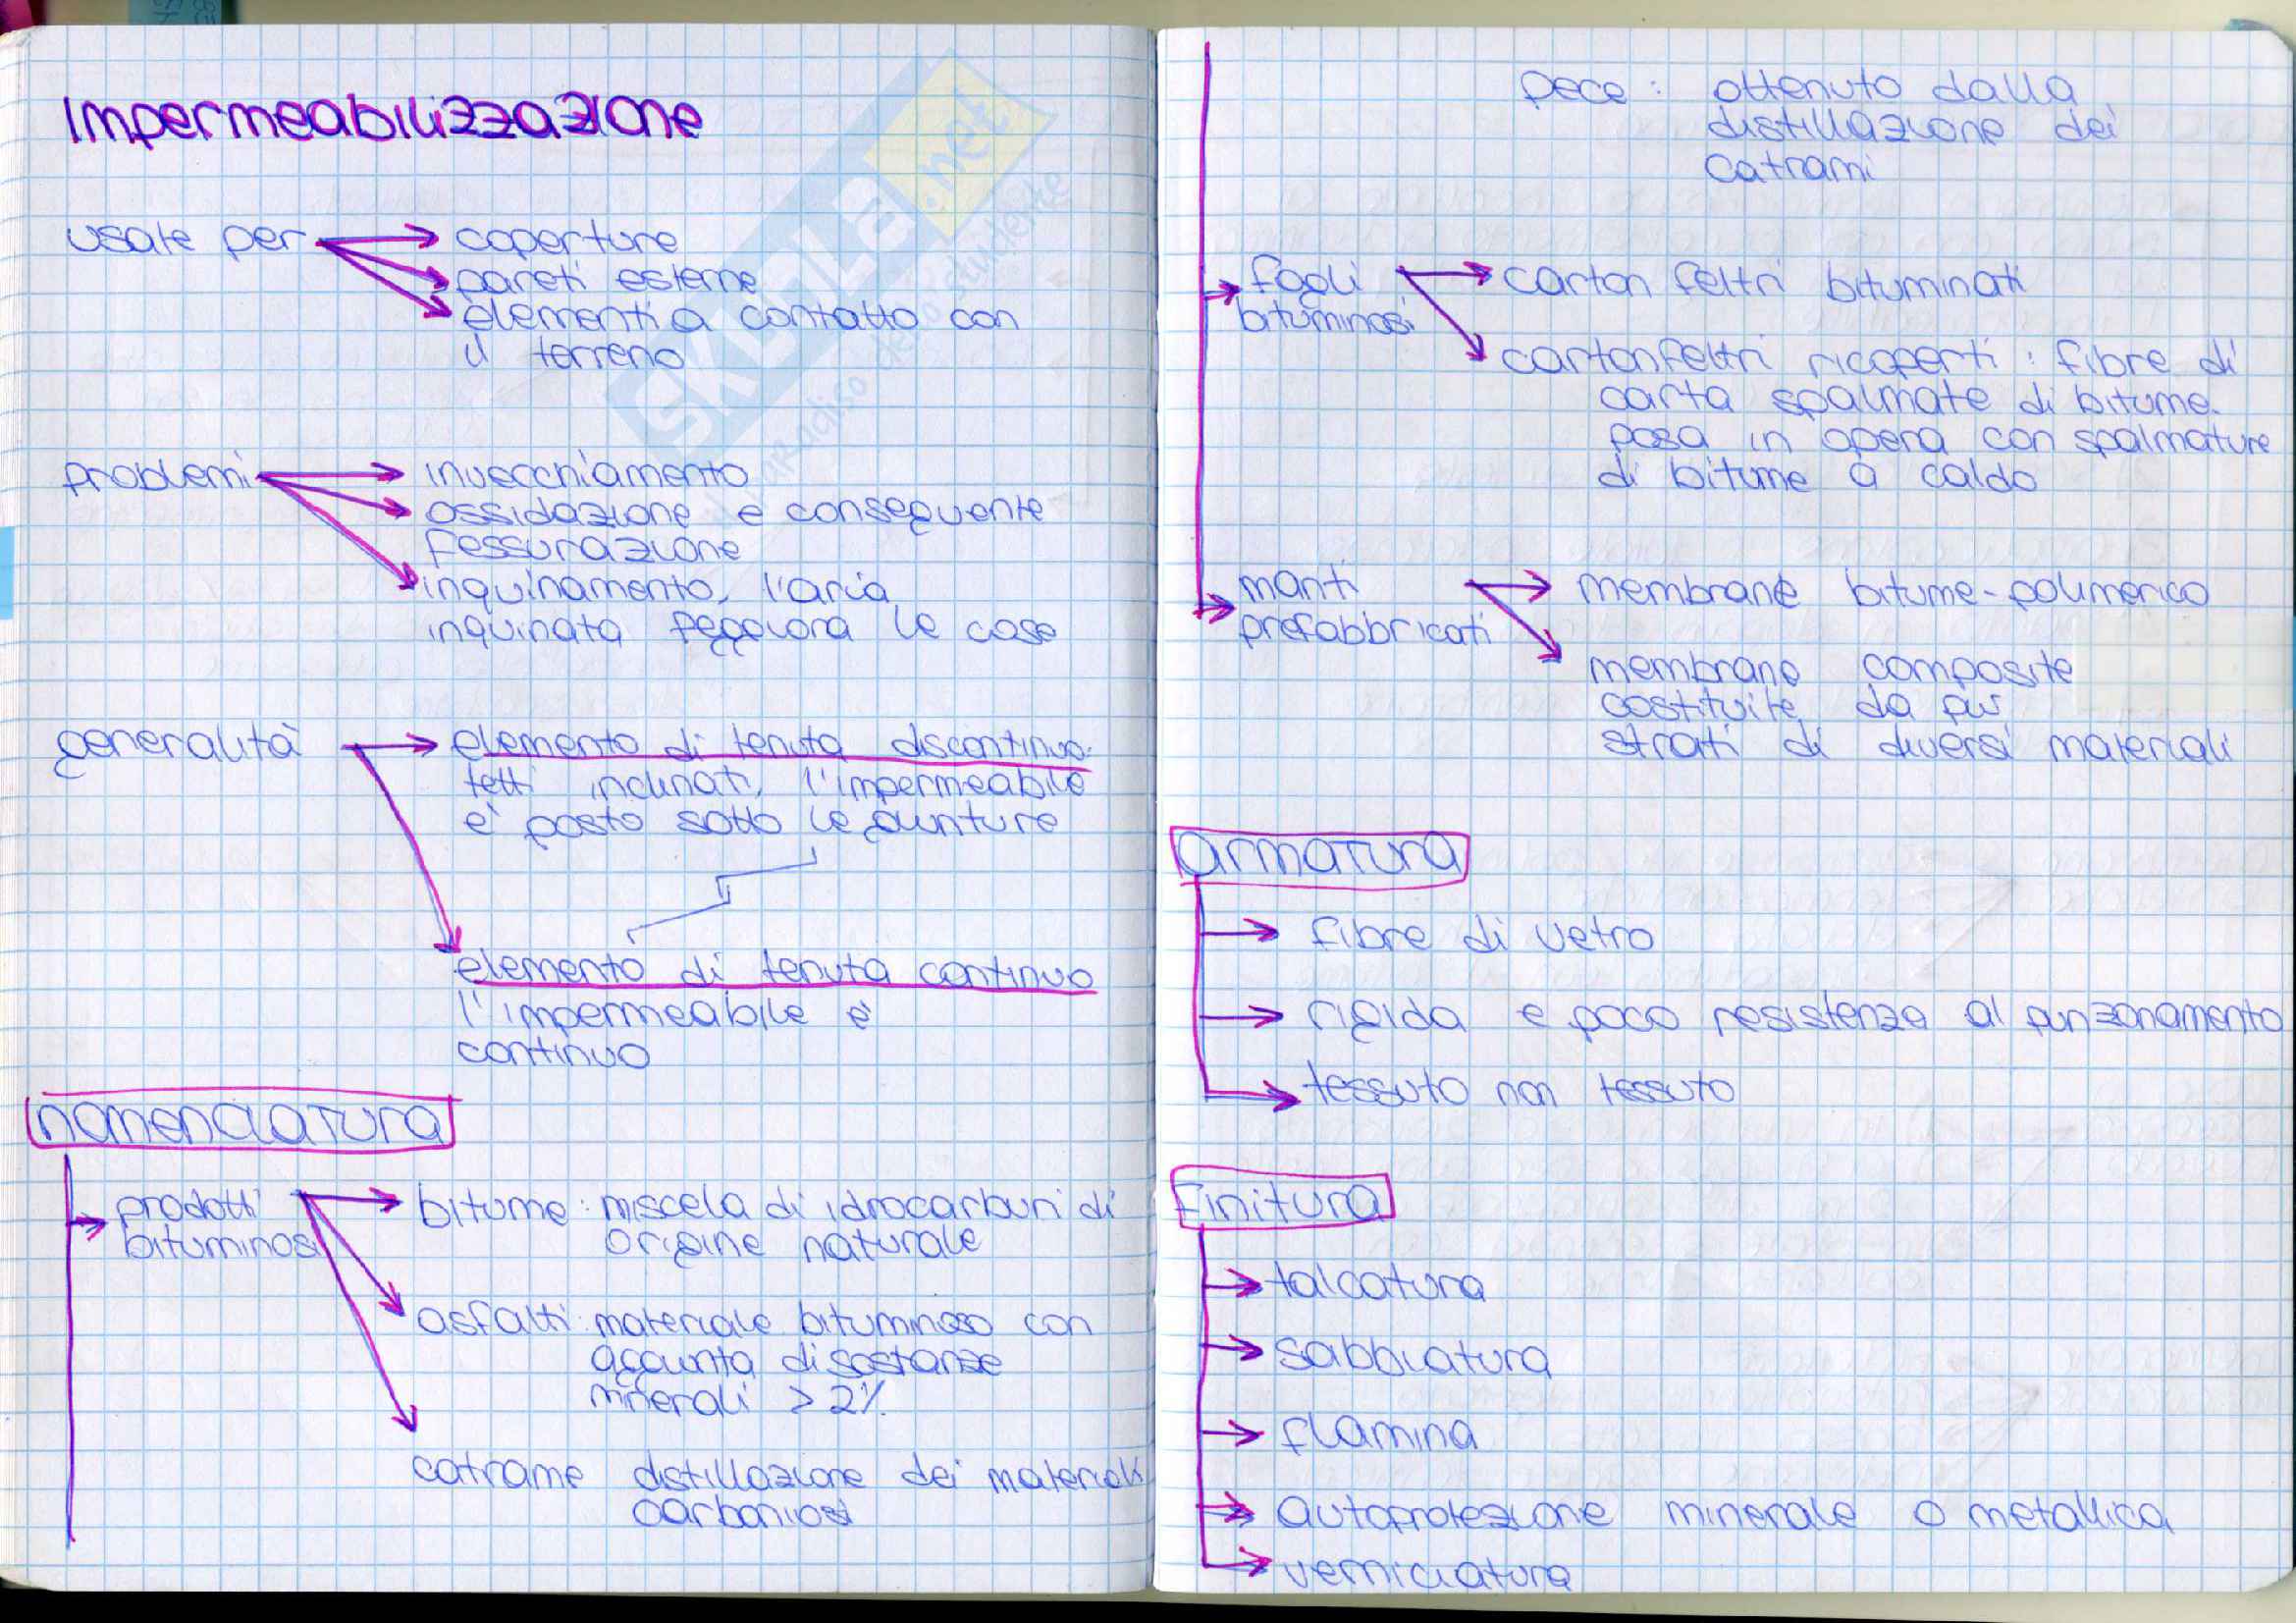 Impermeabilizzazione
usate per
coperture
pareti esterne
elementi a contatto con
il terreno
problemi
invecchiamento
ossidazione e conseguente
fessurazione
inquinamento, l'aria
inquinata peggiora le cose
generalità
elemento di tenuta discontinuo:
tetti inclinati, l'impermeabile
è posto sotto le giunture
elemento di tenuta continuo
l'impermeabile è
continuo
nomenclatura
prodotti
bituminosi
bitume: miscela di idrocarburi di
origine naturale
asfalti: materiale bituminoso con
aggiunta di sostanze
minerali > 2%
catrame distillazione dei materiali
carboniosi
pece: ottenuto dalla
distillazione dei
catrami
fogli
bituminosi
carton feltri bituminati
cartonfeltri ricoperti: fibre di
carta spalmate di bitume.
posa in opera con spalmature
di bitume a caldo
manti
prefabbricati
membrane bitume-polimerico
membrane composite
costituite da più
strati di diversi materiali
armatura
fibre di vetro
rigida e poco resistenza al punzonamento
tessuto non tessuto
finitura
talcatura
sabbiatura
flamina
autoprotezione minerale o metallica
verniciatura
SKUOLA.net